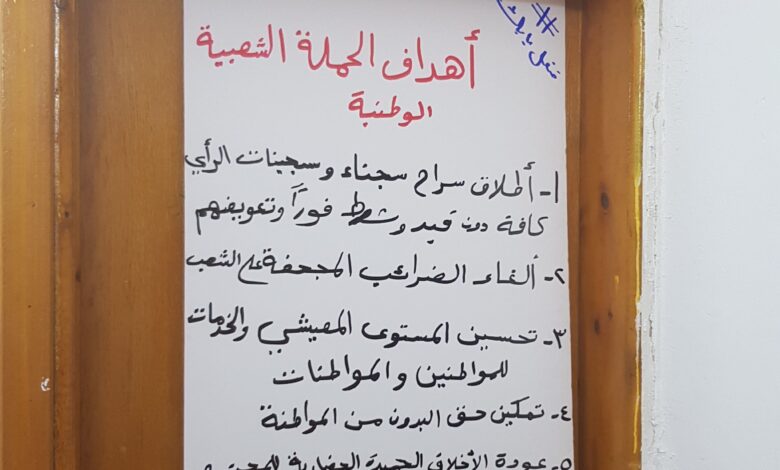 #
أهداف الحملة الشعبية
الوطنية
١- أطلاق سراح سجناء وسجينات الرأي
كافة دون قيد وشرط فوراً وتعويضهم
٢- ألغاء الضرائب المجحفة على الشعب
٣- تحسين المستوى المعيشي والخدمات
للمواطنين والمواطنات
٤- تمكين حق البدون من المواطنة
٥- عودة الأخلاق الحميدة الحضارية